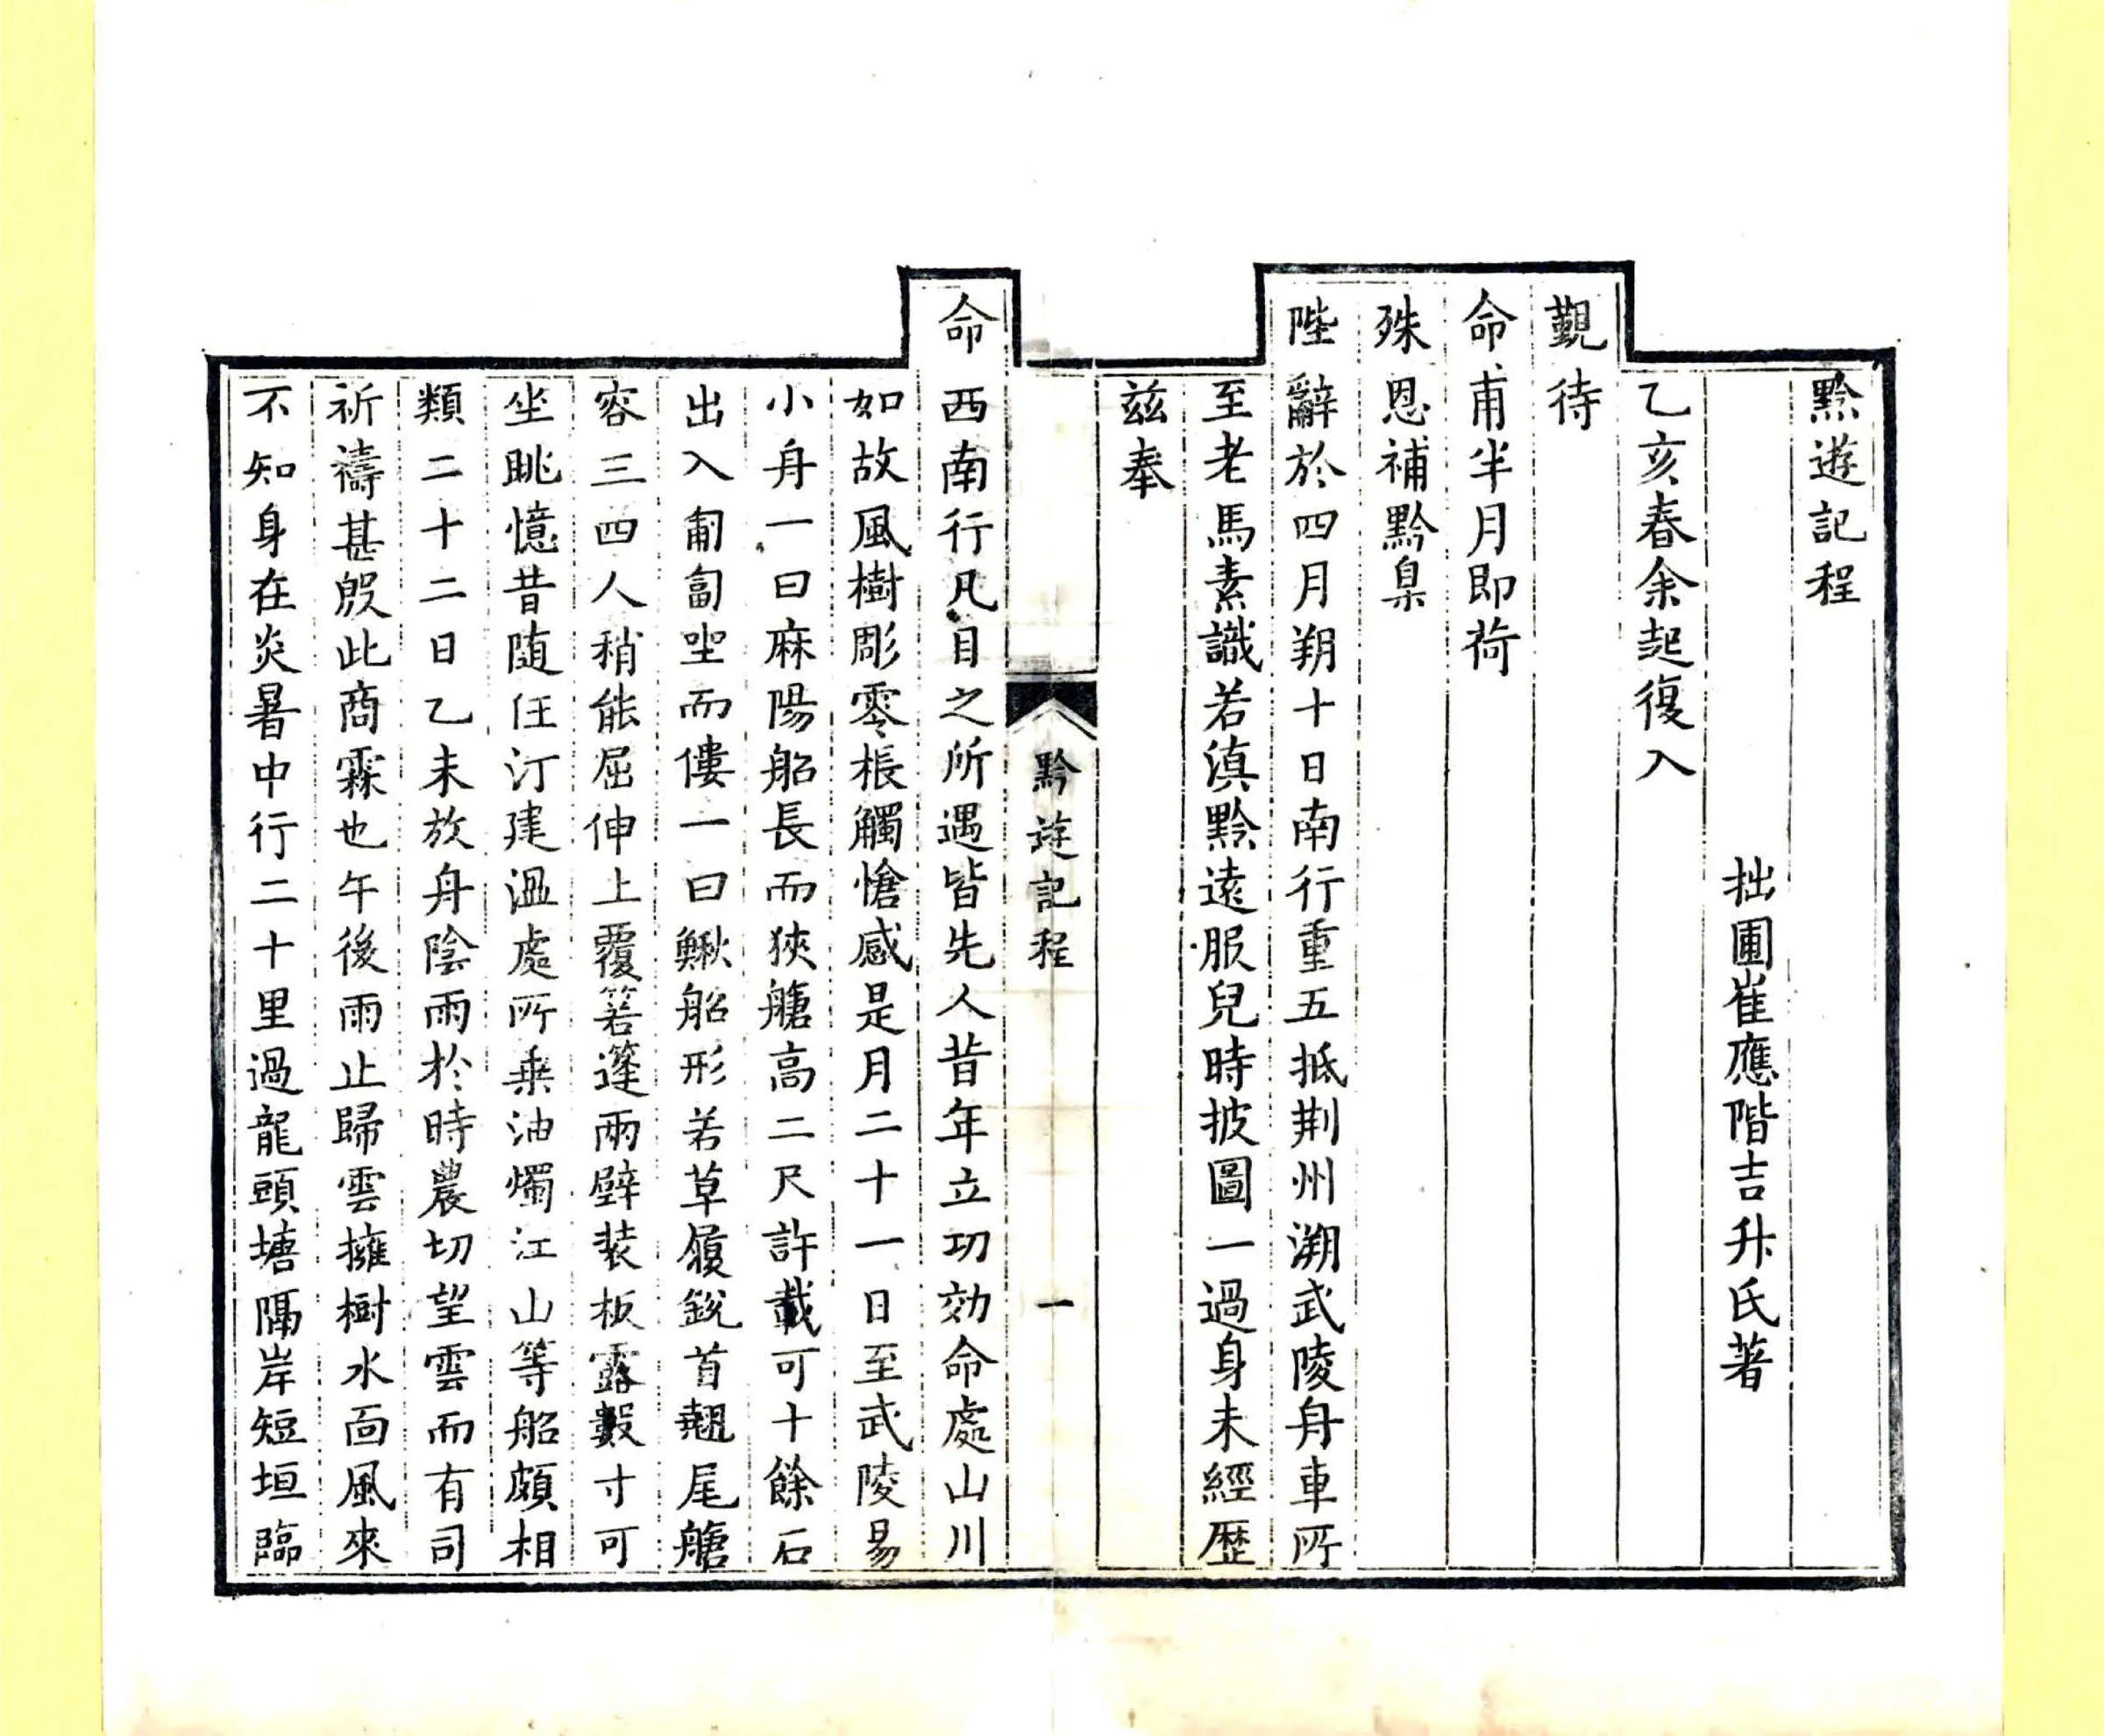 黔遊記程
拙圃崔應階吉升氏著
乙亥春余起復入
覲待
命甫半月即荷
殊恩補黔臬
陛辭於四月朔十日南行重五抵荆州溯武陵舟車所
至老馬素識若滇黔遠服兒時披圖一過身未經歴
兹奉
黔遊記程 一
命西南行凡目之所遇皆先人昔年立功効命處山川
如故風樹彫零棖觸愴感是月二十一日至武陵易
小舟一曰麻陽船長而狹艙高二尺許載可十餘石
出入匍匐坐而僂一曰鰍船形若草履銳首翹尾艙
容三四人稍能屈伸上覆箬篷兩壁裝板露數寸可
坐眺憶昔随任汀建溫處所乗油燭江山等船頗相
類二十二日乙未放舟陰雨於時農切望雲而有司
祈禱甚殷此商霖也午後雨止歸雲擁樹水面風來
不知身在炎暑中行二十里過龍頭塘隔岸短垣臨